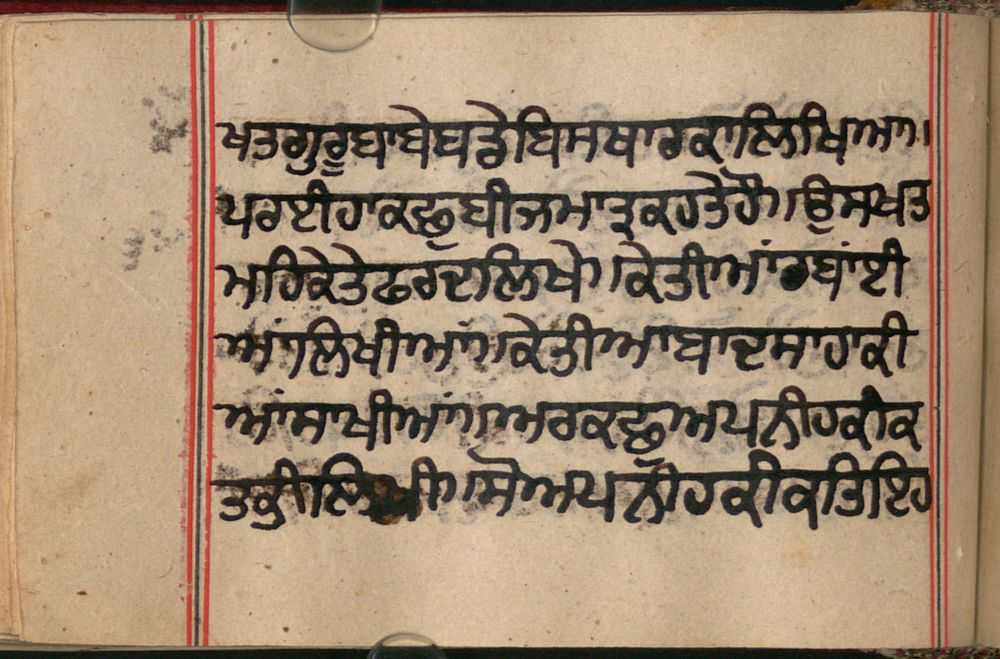 ਖਤਗੁਰੂਬਾਬੇਬਡੇਬਿਸਥਾਰਕਾਲਿਖਿਆ॥
ਪਰਈਹਾਕਛੁਬੀਜਮਾਤ੍ਰਕਹਤੇਹੈ॥ਉਸਖਤ
ਮਹਿਕੇਤੇਫਰਦਲਿਖੇ॥ਕੇਤੀਆਂਰਬਾਂਈ
ਆਂਲਿਖੀਆਂ॥ਕੇਤੀਆਬਾਦਸਾਹਾਕੀ
ਆਂਸਾਖੀਆਂ॥ਅਰਕਛੁਅਪਨੀਹਕੀਕ
ਤਕੀਲਿਖੀ॥ਸੋਅਪਨੀਹਕੀਕਤਿਇਹ